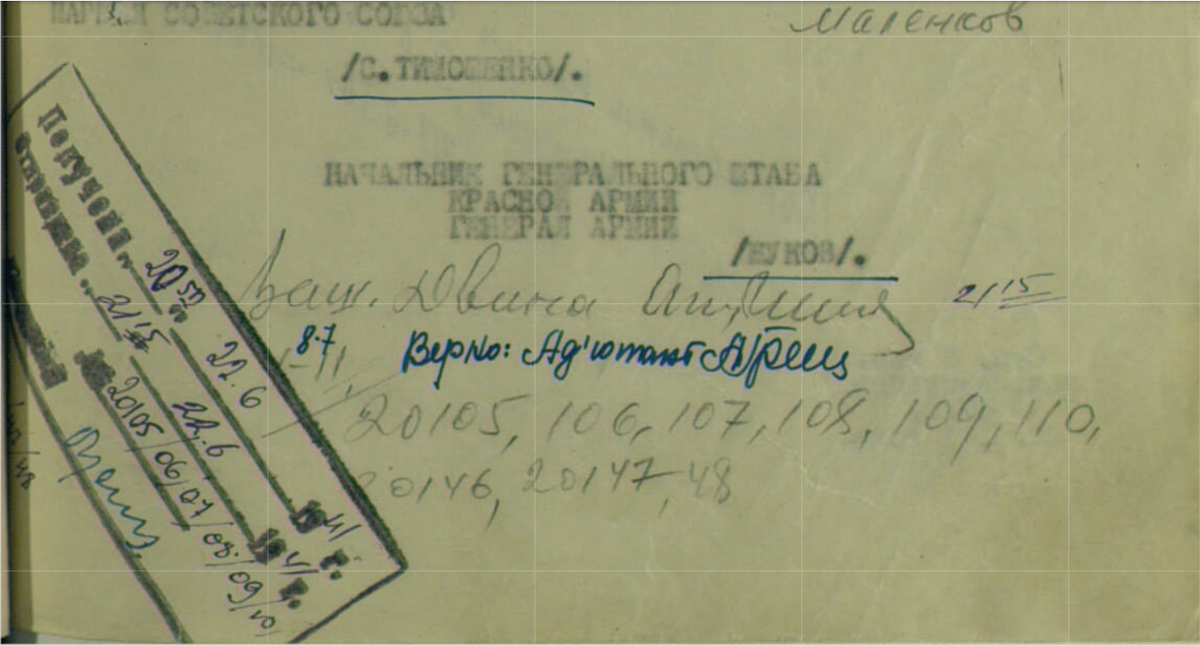 МАРШАЛ СОВЕТСКОГО СОЮЗА
Маленков
/С.ТИМОШЕНКО/.
НАЧАЛЬНИК ГЕНЕРАЛЬНОГО ШТАБА
КРАСНОЙ АРМИИ
ГЕНЕРАЛ АРМИИ
/ЖУКОВ/.
Двина
21 15
8-7
Верно: Ад'ютант
20105, 106, 107, 108, 109, 110,
20146, 20147, 48
Получена " 20 50 " 22.6 1941 г.
Отправлена " 21 15 " 22.6 1941 г.
№ 20105/06/07/08/09/10